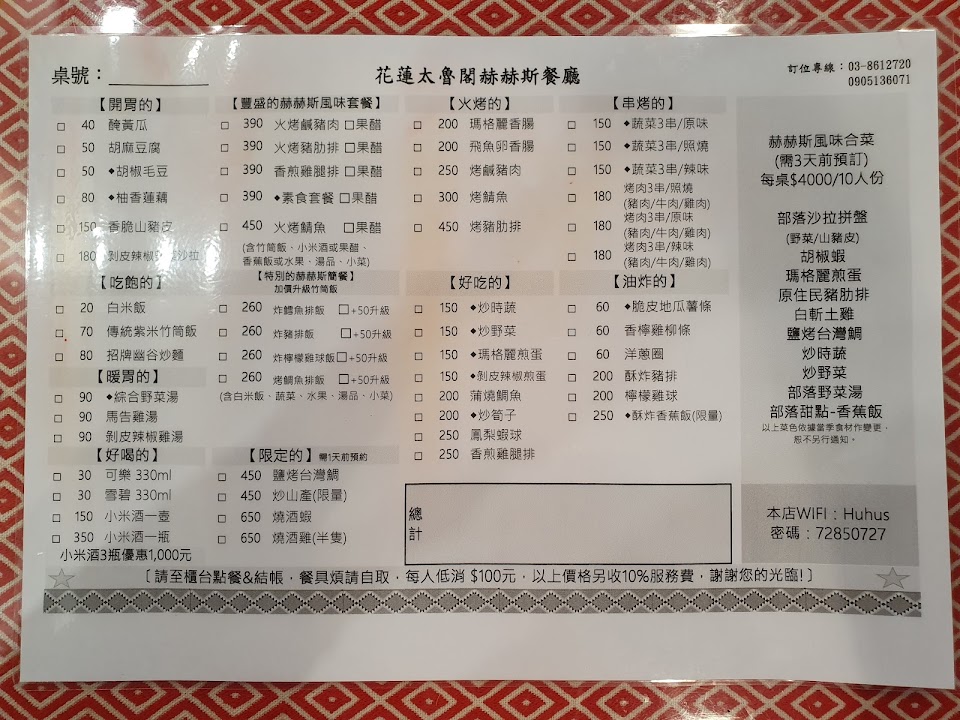 桌號：
花蓮太魯閣赫赫斯餐廳
訂位專線：03-8612720
0905136071
【開胃的】
□ 40 醃黃瓜
□ 50 胡麻豆腐
□ 50 ◆胡椒毛豆
□ 80 ◆柚香蓮藕
□ 150 香脆山豬皮
□ 180 剝皮辣椒 沙拉
【吃飽的】
□ 20 白米飯
□ 70 傳統紫米竹筒飯
□ 80 招牌幽谷炒麵
【暖胃的】
□ 90 ◆綜合野菜湯
□ 90 馬告雞湯
□ 90 剝皮辣椒雞湯
【好喝的】
□ 30 可樂 330ml
□ 30 雪碧 330ml
□ 150 小米酒一壺
□ 350 小米酒一瓶
小米酒3瓶優惠1,000元
【豐盛的赫赫斯風味套餐】
□ 390 火烤鹹豬肉 □果醋
□ 390 火烤豬肋排 □果醋
□ 390 香煎雞腿排 □果醋
□ 390 ◆素食套餐 □果醋
□ 450 火烤鯖魚 □果醋
(含竹筒飯、小米酒或果醋、
香蕉飯或水果、湯品、小菜)
【特別的赫赫斯簡餐】
加價升級竹筒飯
□ 260 炸鱈魚排飯 □+50升級
□ 260 炸豬排飯 □+50升級
□ 260 炸檸檬雞球飯□+50升級
□ 260 烤鯛魚排飯 □+50升級
(含白米飯、蔬菜、水果、湯品、小菜)
【限定的】需1天前預約
□ 450 鹽烤台灣鯛
□ 450 炒山產(限量)
□ 650 燒酒蝦
□ 650 燒酒雞(半隻)
【火烤的】
□ 200 瑪格麗香腸
□ 200 飛魚卵香腸
□ 250 烤鹹豬肉
□ 300 烤鯖魚
□ 450 烤豬肋排
【好吃的】
□ 150 ◆炒時蔬
□ 150 ◆炒野菜
□ 150 ◆瑪格麗煎蛋
□ 150 ◆剝皮辣椒煎蛋
□ 200 蒲燒鯛魚
□ 200 ◆炒筍子
□ 250 鳳梨蝦球
□ 250 香煎雞腿排
【串烤的】
□ 150 ◆蔬菜3串/原味
□ 150 ◆蔬菜3串/照燒
□ 150 ◆蔬菜3串/辣味
□ 180 烤肉3串/照燒
(豬肉/牛肉/雞肉)
□ 180 烤肉3串/原味
(豬肉/牛肉/雞肉)
□ 180 烤肉3串/辣味
(豬肉/牛肉/雞肉)
【油炸的】
□ 60 ◆脆皮地瓜薯條
□ 60 香檸雞柳條
□ 60 洋蔥圈
□ 200 酥炸豬排
□ 200 檸檬雞球
□ 250 ◆酥炸香蕉飯(限量)
總
計
赫赫斯風味合菜
(需3天前預訂)
每桌$4000/10人份
部落沙拉拼盤
(野菜/山豬皮)
胡椒蝦
瑪格麗煎蛋
原住民豬肋排
白斬土雞
鹽烤台灣鯛
炒時蔬
炒野菜
部落野菜湯
部落甜點-香蕉飯
以上菜色依據當季食材作變更，
恕不另行通知。
本店WIFI：Huhus
密碼：72850727
〔 請至櫃台點餐&結帳，餐具煩請自取，每人低消 $100元，以上價格另收10%服務費，謝謝您的光臨!〕